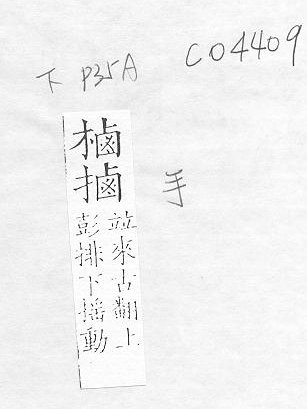 下 P35A
C04409
樐
手
竝來古翻上
彭排下揺動